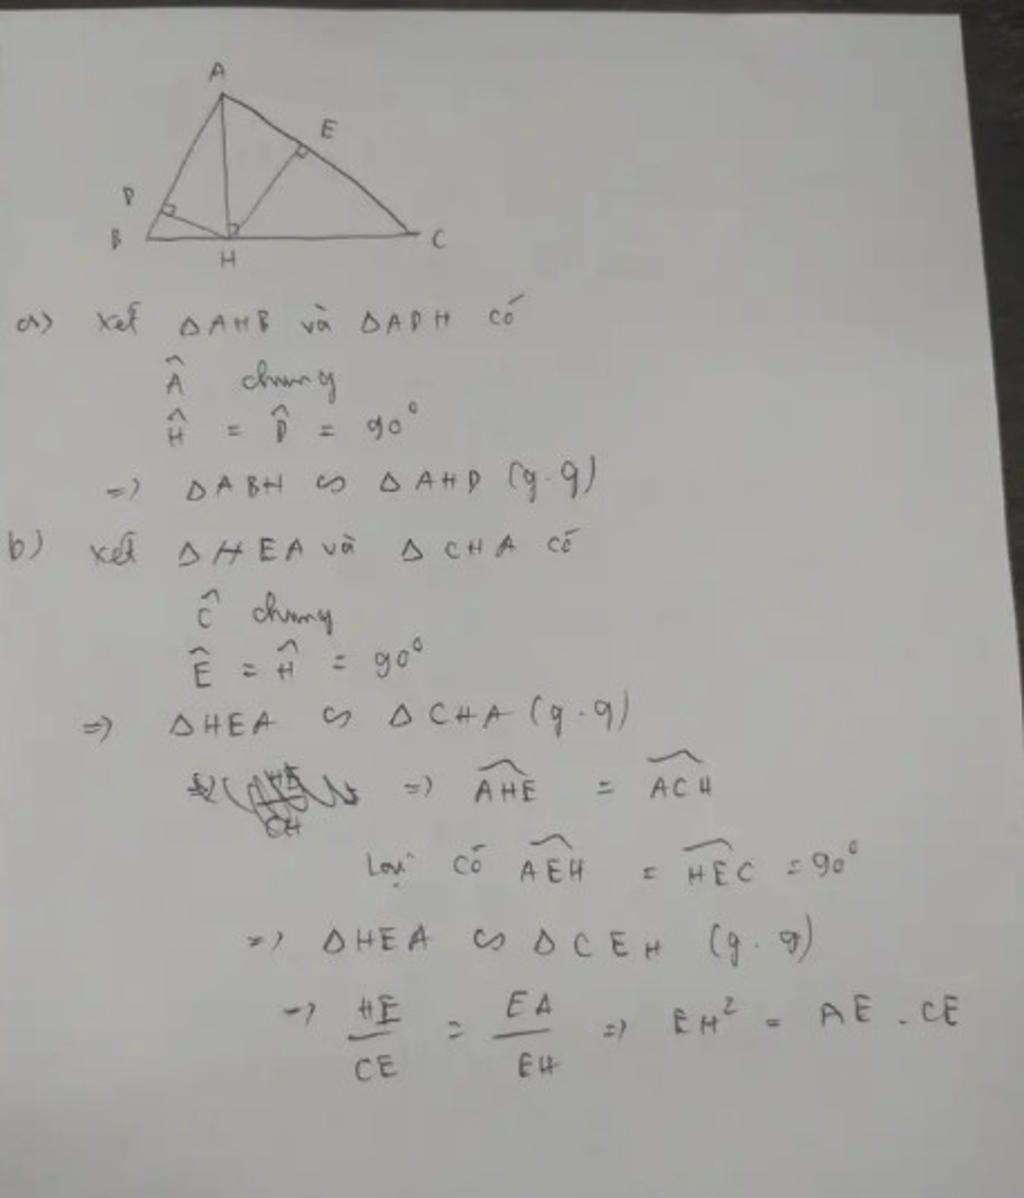 A
E
D
B
C
H
a) Xét ΔAHB và ΔADH có
Â chung
Ĥ = D̂ = 90°
=> ΔABH ∽ ΔAHD (g.g)
b) xét ΔHEA và ΔCHA có
Ĉ chung
Ê = Ĥ = 90°
=> ΔHEA ∽ ΔCHA (g.g)
=> \widehat{AHE} = \widehat{ACH}
Lại có \widehat{AEH} = \widehat{HEC} = 90°
=> ΔHEA ∽ ΔCEH (g.g)
=> HE/CE = EA/EH => EH² = AE . CE